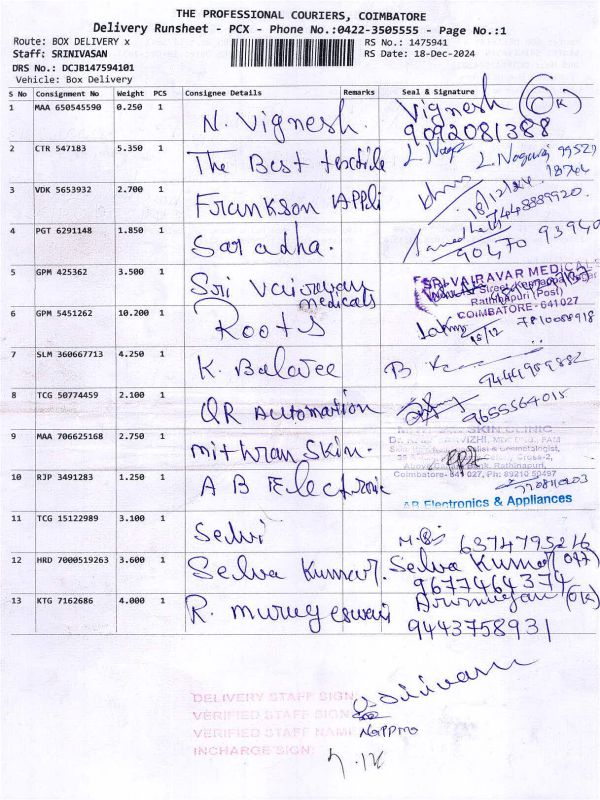 THE PROFESSIONAL COURIERS, COIMBATORE
Delivery Runsheet - PCX - Phone No.:0422-3505555 - Page No.:1
Route: BOX DELIVERY x
RS No.: 1475941
Staff: SRINIVASAN
RS Date: 18-Dec-2024
DRS No.: DCJB147594101
Vehicle: Box Delivery
S No Consignment No Weight PCS Consignee Details Remarks Seal & Signature
1 MAA 650545590 0.250 1 N. Vignesh. Vignesh (OK)
9092081388
2 CTR 547183 5.350 1 The Best textile L. Nagaraj
3 VDK 5653932 2.700 1 Frankson Appli 18/12/24
7448889920.
4 PGT 6291148 1.850 1 Saradha.
5 GPM 425362 3.500 1 Sri Vairavar medicals SRI VAIRAVAR MEDICALS
Rathinapuri (Post)
COIMBATORE - 641 027
6 GPM 5451262 10.200 1 Roots 18/12 7810088918
7 SLM 360667713 4.250 1 K. Balajee
8 TCG 50774459 2.100 1 QR Automation 9655564015
9 MAA 706625168 2.750 1 mithran skin. SKIN CLINIC
Coimbatore- 641 027, Ph: 89210 50497
10 RJP 3491283 1.250 1 A B Electronic
AB Electronics & Appliances
11 TCG 15122989 3.100 1 Selvi 6374795216
12 HRD 7000519263 3.600 1 Selva Kumar. Selva Kumar
9677464374
13 KTG 7162686 4.000 1 R. murugeswari Arumugam (OK)
9443758931
DELIVERY STAFF SIGN:
VERIFIED STAFF SIGN:
VERIFIED STAFF NAME:
INCHARGE SIGN: